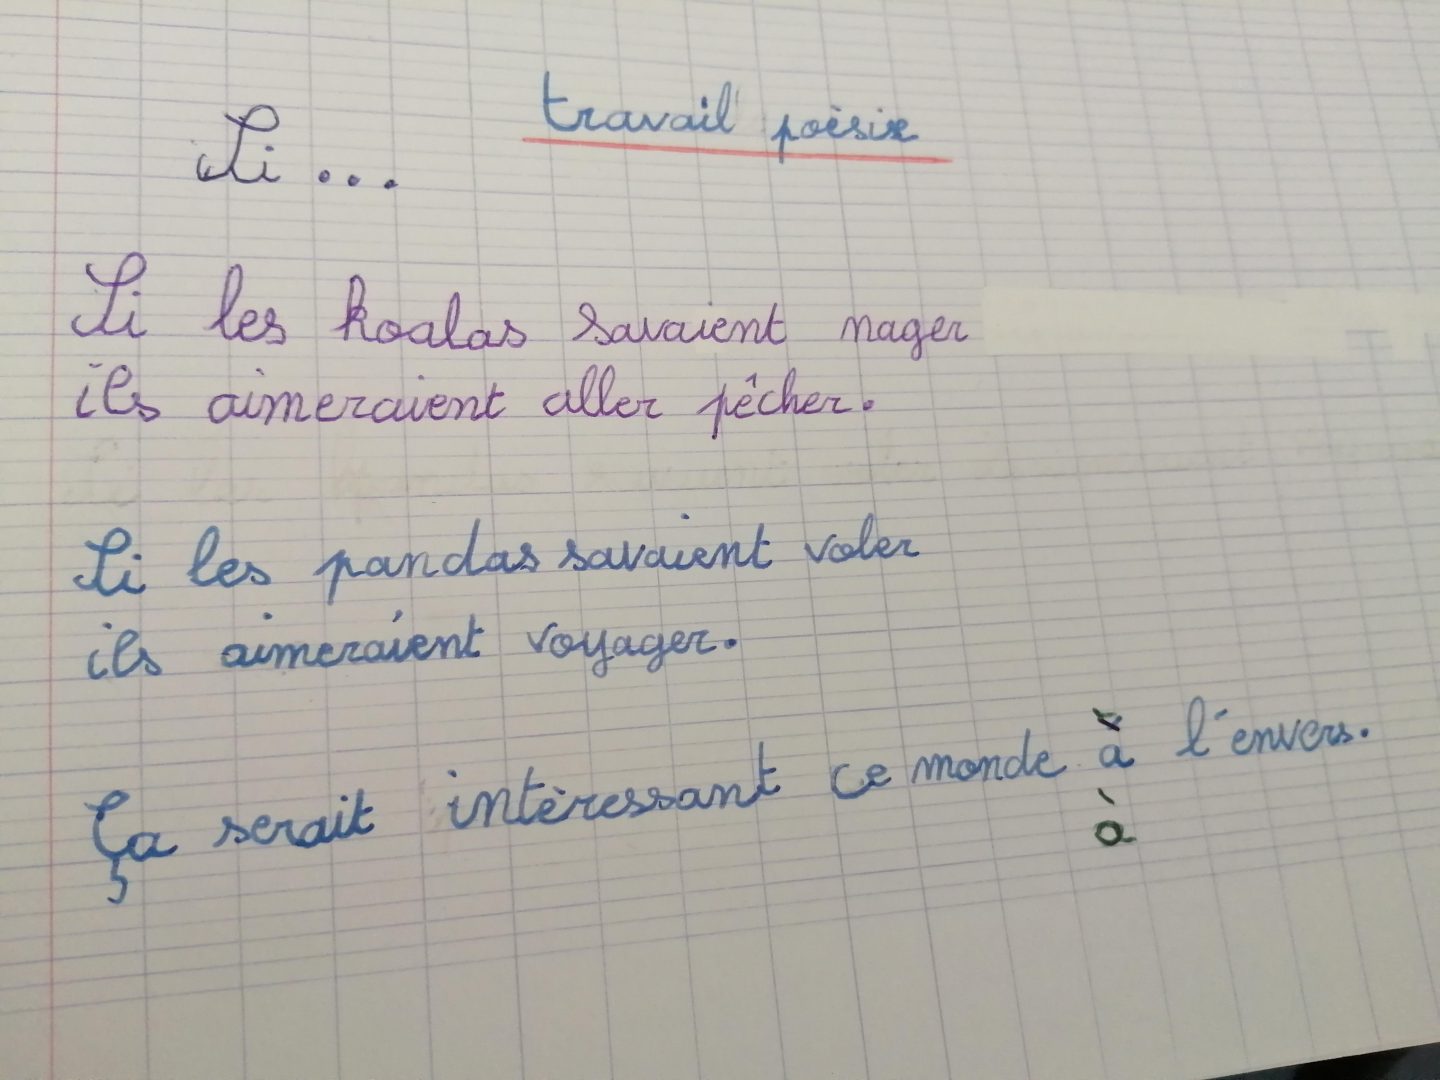 travail poèsie
Si ...
Si les koalas savaient nager
ils aimeraient aller pêcher.
Si les pandas savaient voler
ils aimeraient voyager.
Ça serait intèressant ce monde à l'envers.
à